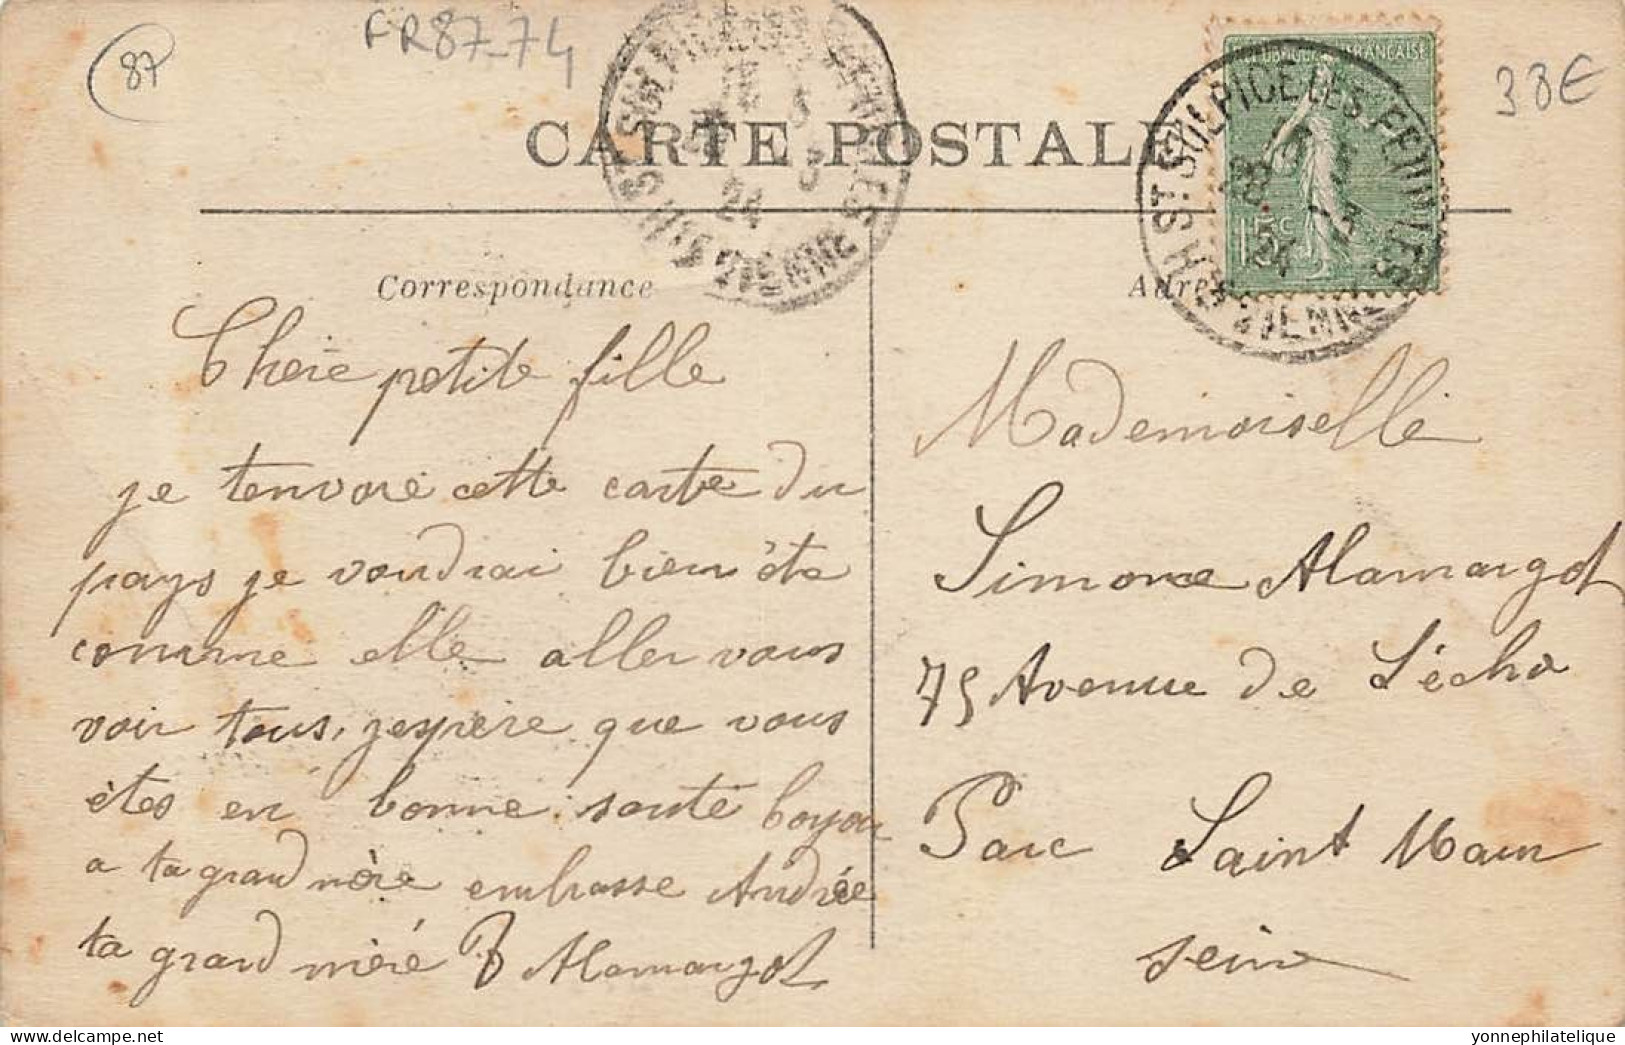 87
FR87-74
38€
CARTE POSTALE
REPUBLIQUE FRANÇAISE
15c
ST SULPICE LES FEUILLES
HTE VIENNE
24
Correspondance
Chère petite fille
je tenvoie cette carte du
pays je voudrai bien ête
comme elle aller vous
voir tous, jespère que vous
êtes en bonne santé
a ta grand mère embrasse Andrée
ta grand mère Alamargot
Mademoiselle
Simone Alamargot
75 Avenue de L'écho
Parc Saint Maur
Seine
yonnephilatelique